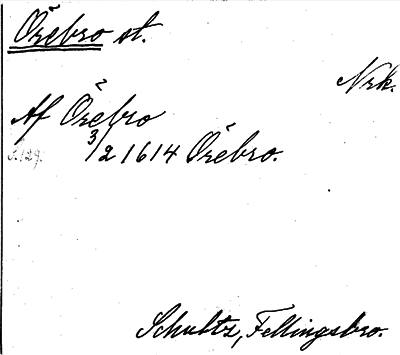 Örebro st.
Nrk.
Af Örebro
s. 129. 3/2 1614 Örebro.
Schultz, Fellingsbro.